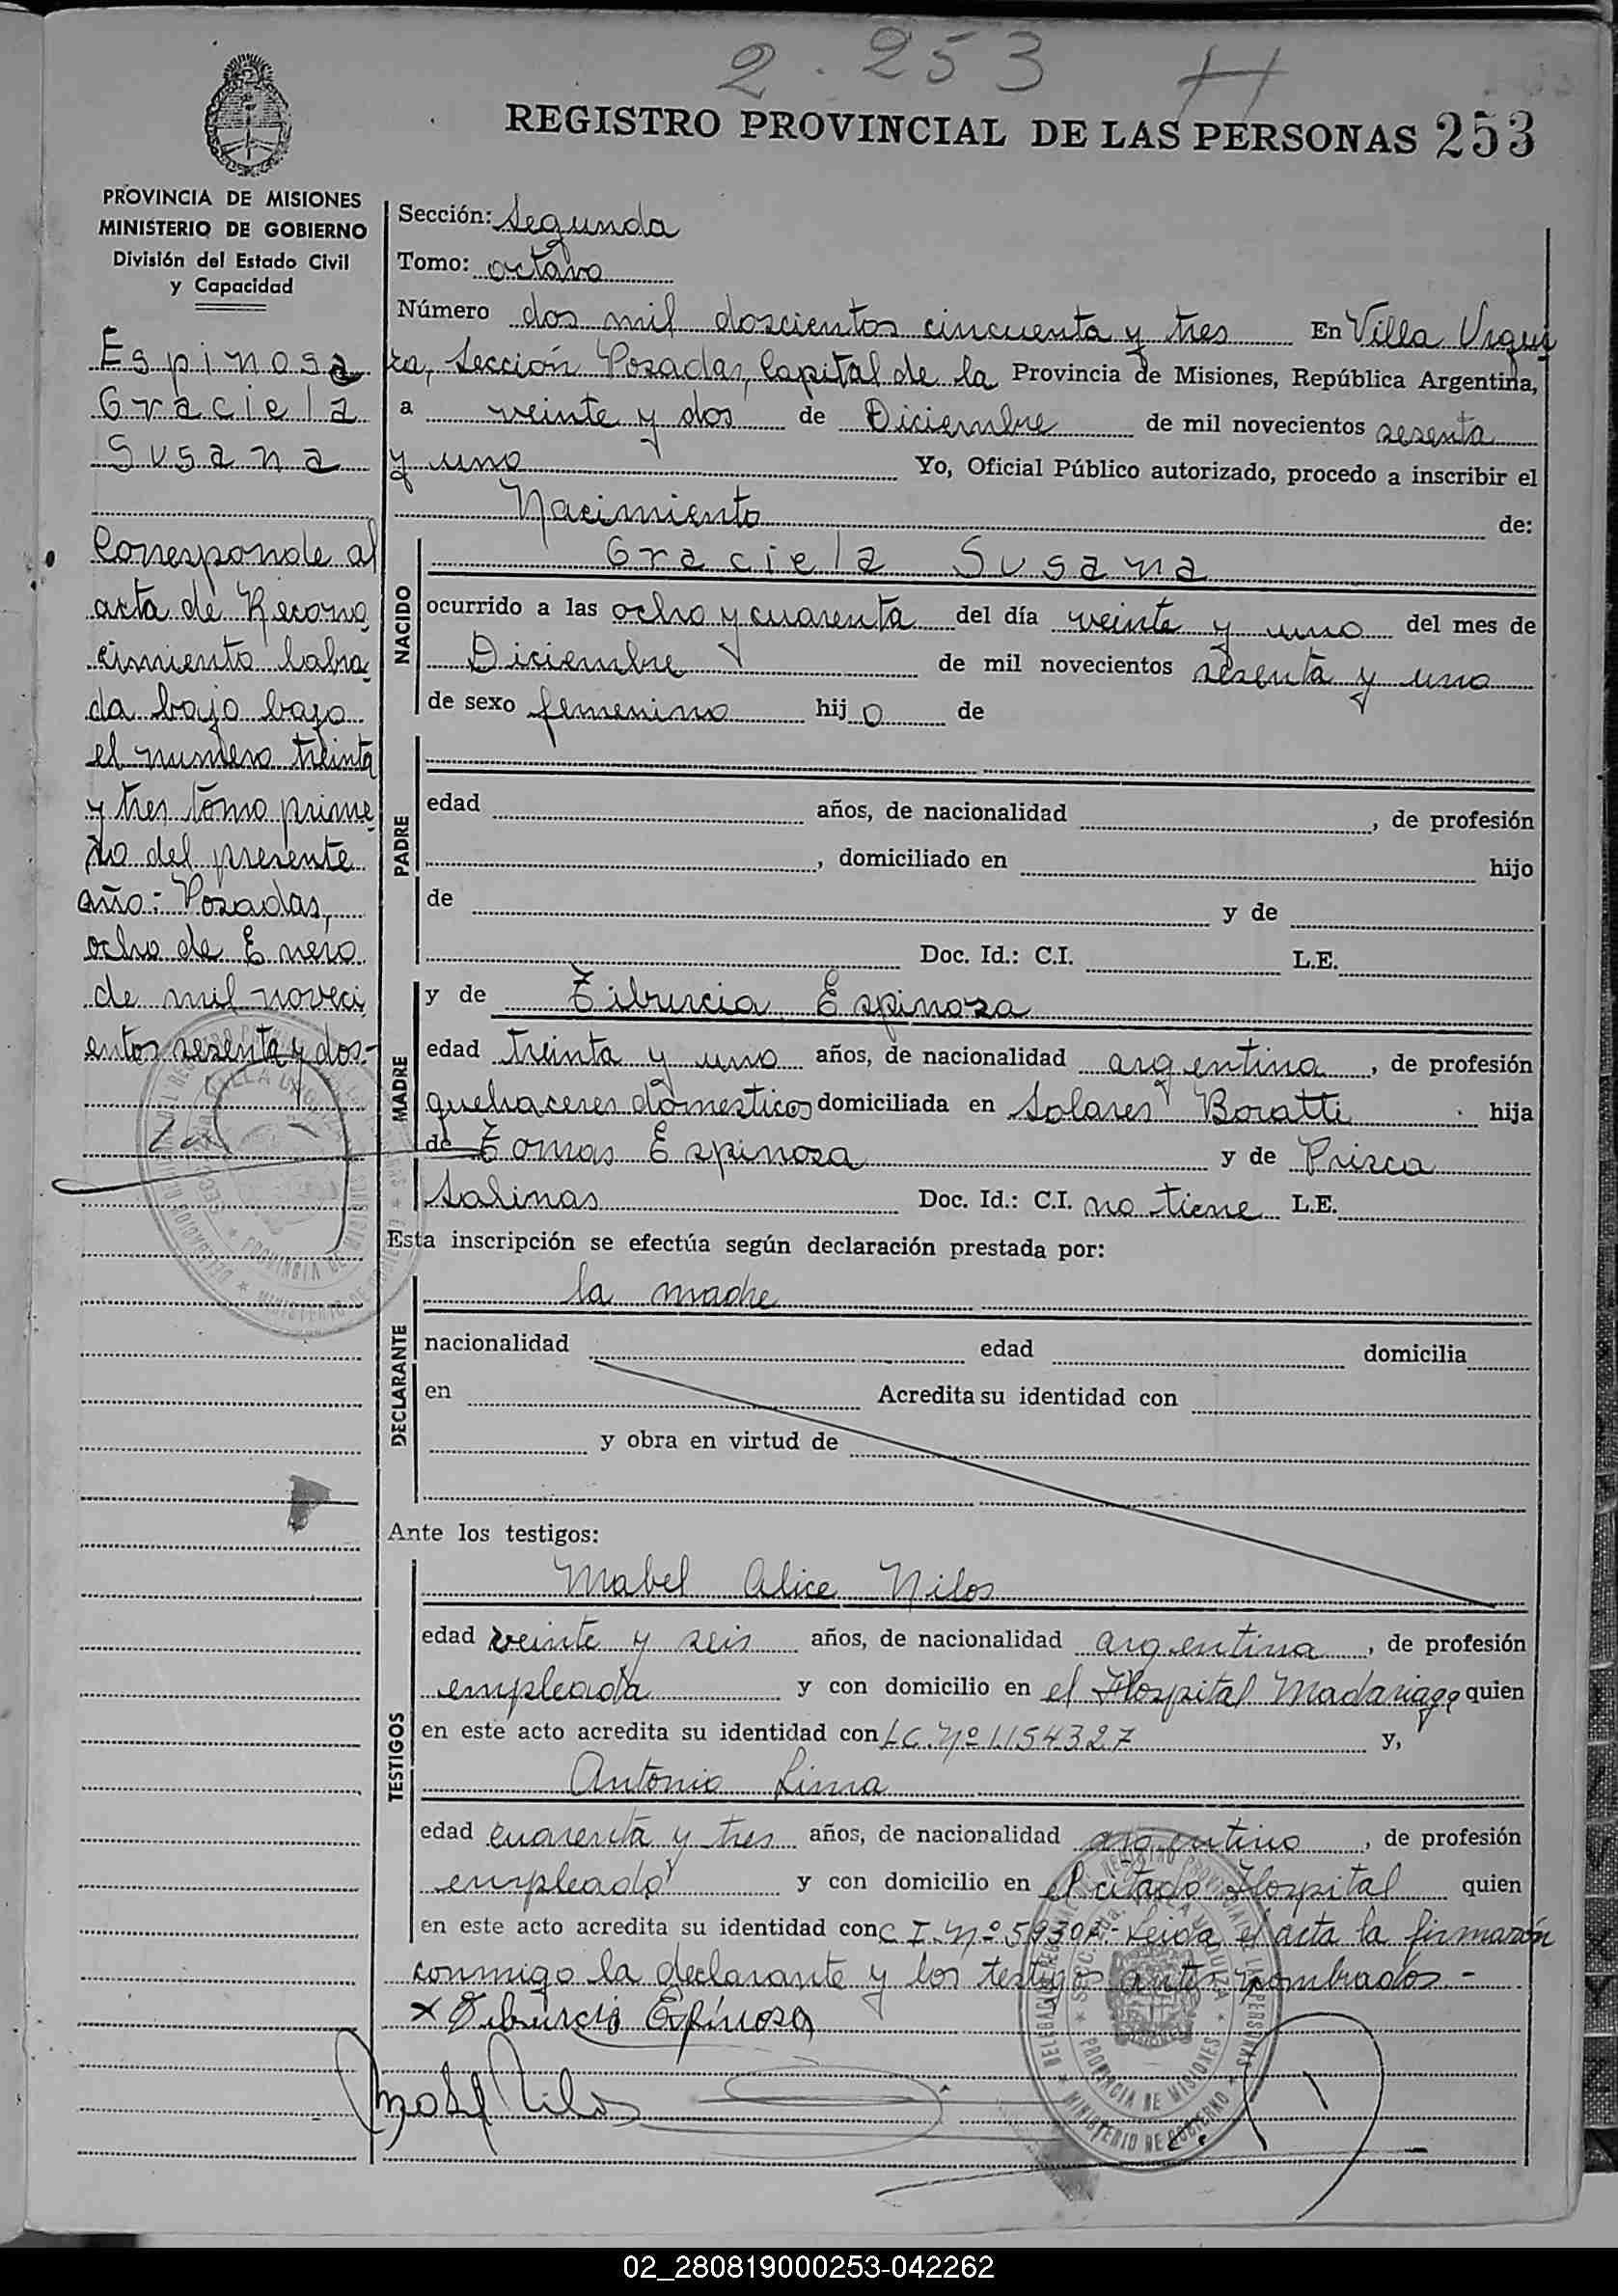 2.253 H
REGISTRO PROVINCIAL DE LAS PERSONAS 253
PROVINCIA DE MISIONES
MINISTERIO DE GOBIERNO
División del Estado Civil
y Capacidad
Espinosa
Graciela
Susana
Corresponde al
acta de Recono
cimiento labra
da bajo bajo
el numero treinta
y tres tomo prime
ro del presente
año: Posadas,
ocho de Enero
de mil noveci
entos sesenta y dos.-
Sección: Segunda
Tomo: octavo
Número dos mil doscientos cincuenta y tres En Villa Urqui
za, Sección Posadas, Capital de la Provincia de Misiones, República Argentina,
a veinte y dos de Diciembre de mil novecientos sesenta
y uno Yo, Oficial Público autorizado, procedo a inscribir el
Nacimiento de:
NACIDO
Graciela Susana
ocurrido a las ocho y cuarenta del día veinte y uno del mes de
Diciembre de mil novecientos sesenta y uno
de sexo femenino hij a de
PADRE
edad años, de nacionalidad , de profesión
, domiciliado en hijo
de y de
Doc. Id.: C.I. L.E.
MADRE
y de Tiburcia Espinosa
edad treinta y uno años, de nacionalidad argentina , de profesión
quehaceres domesticos domiciliada en Solares Boratti hija
de Tomas Espinosa y de Prisca
Salinas Doc. Id.: C.I. no tiene L.E.
Esta inscripción se efectúa según declaración prestada por:
DECLARANTE
la madre
nacionalidad edad domicilia
en Acredita su identidad con
y obra en virtud de
Ante los testigos:
TESTIGOS
Mabel Alice Nilos
edad veinte y seis años, de nacionalidad argentina , de profesión
empleada y con domicilio en el Hospital Madariaga quien
en este acto acredita su identidad con L.C. Nº 1.154.327 y,
Antonio Lima
edad cuarenta y tres años, de nacionalidad argentino , de profesión
empleado y con domicilio en el citado Hospital quien
en este acto acredita su identidad con C.I. Nº Leida el acta la firmarón
conmigo la declarante y los testigos antes nombrados.-
x Tiburcia Espinosa
Mabel Nilos
PROVINCIA DE MISIONES
MINISTERIO DE GOBIERNO
02_280819000253-042262